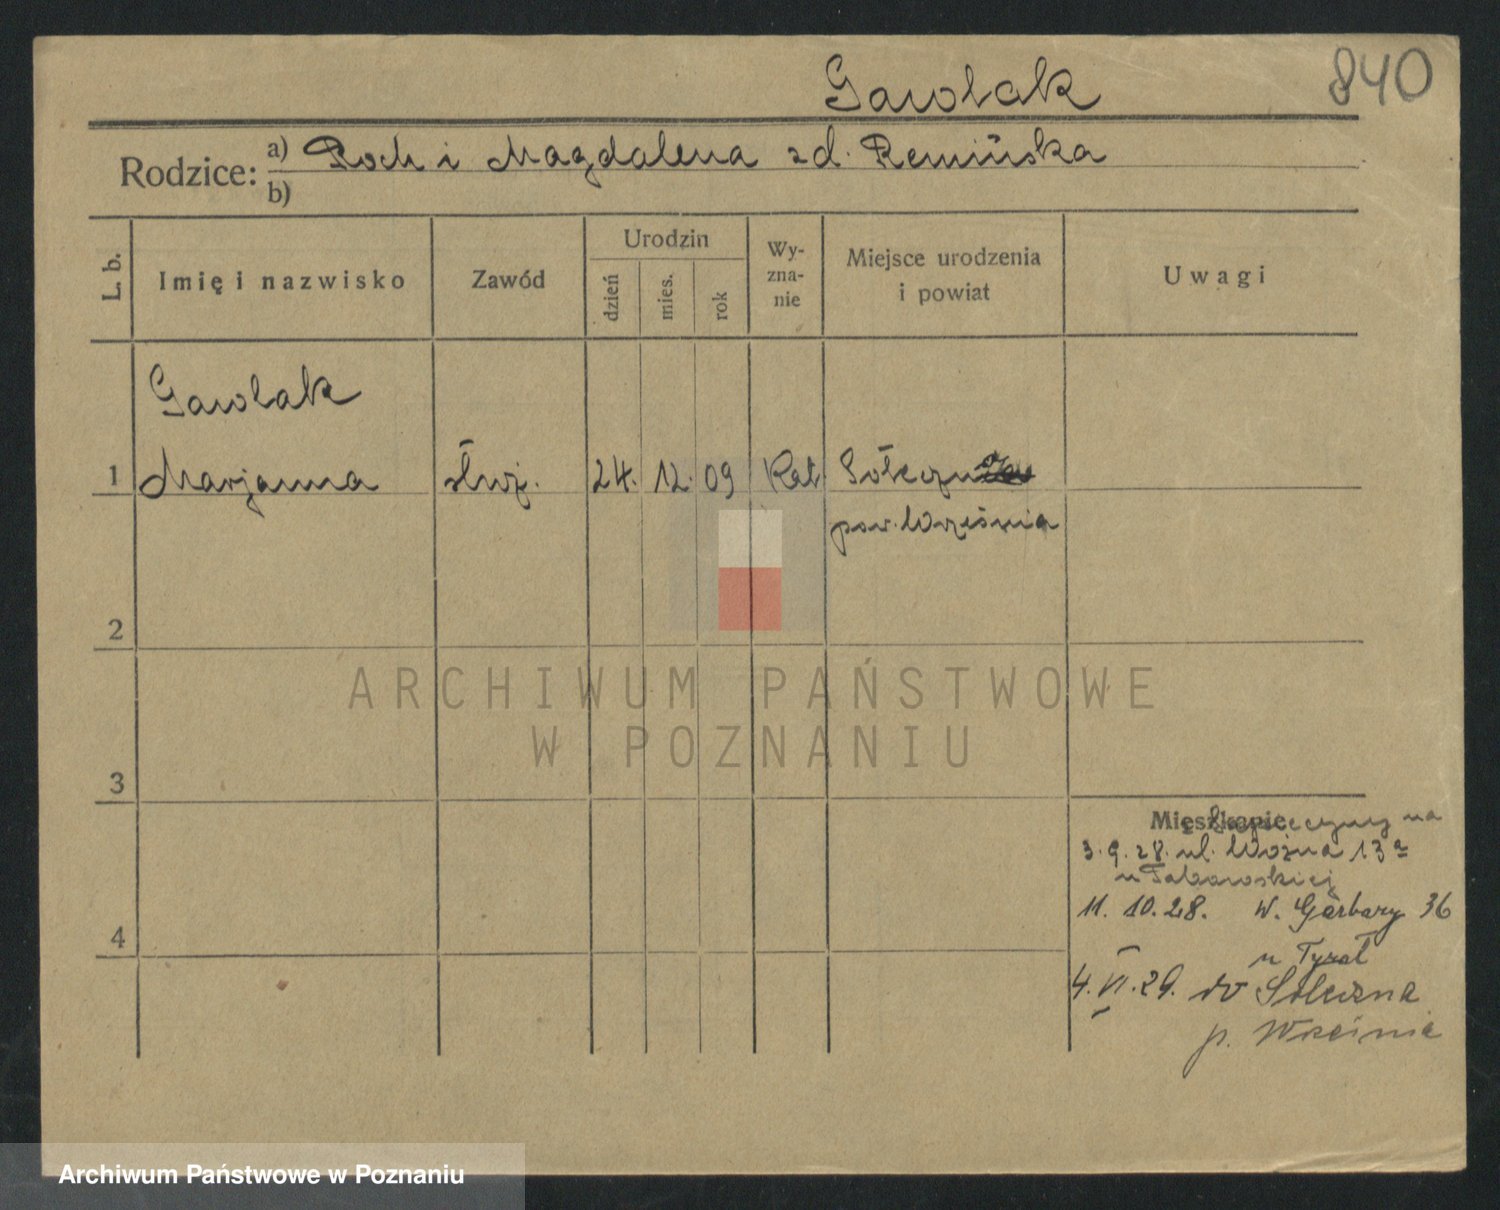 Gawlak 840
Rodzice: a) Roch i Magdalena zd. Remińska
b)
L. b. Imię i nazwisko Zawód Urodzin dzień mies. rok Wy-zna-nie Miejsce urodzenia i powiat Uwagi
Gawlak
1 Marjanna służ. 24. 12. 09 Kat Sołeczna
pow. Września
2
ARCHIWUM PAŃSTWOWE
W POZNANIU
3
Mieszkanie na
3.9.28. ul. Woźna 13a
u Taborowskiej
4 11. 10. 28. W. Garbary 36
u Tyrał
4.VI.29. do Sołeczna
p. Września
Archiwum Państwowe w Poznaniu